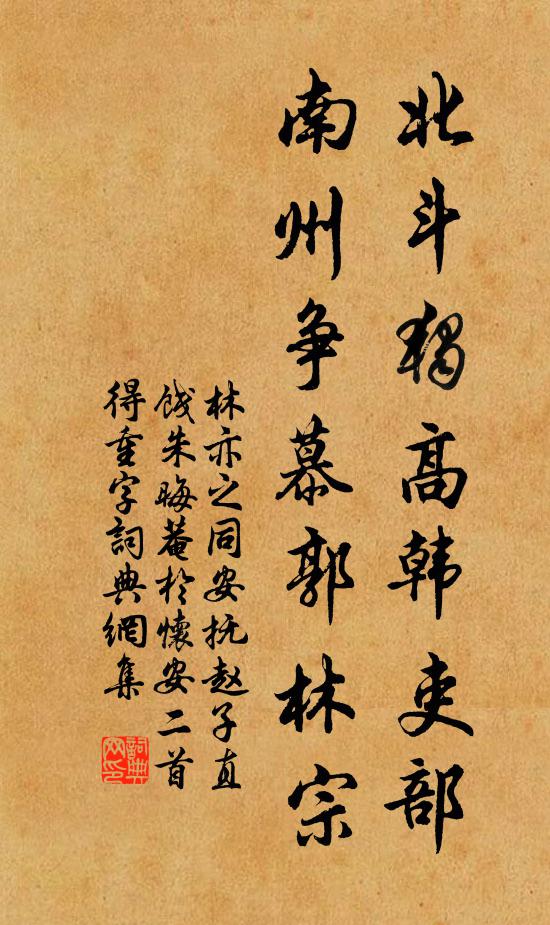 北斗独高韩吏部
南州争慕郭林宗
林亦之同安抚赵子直
饯朱晦菴於懷安二首
得重字詞典網集
詞典網印